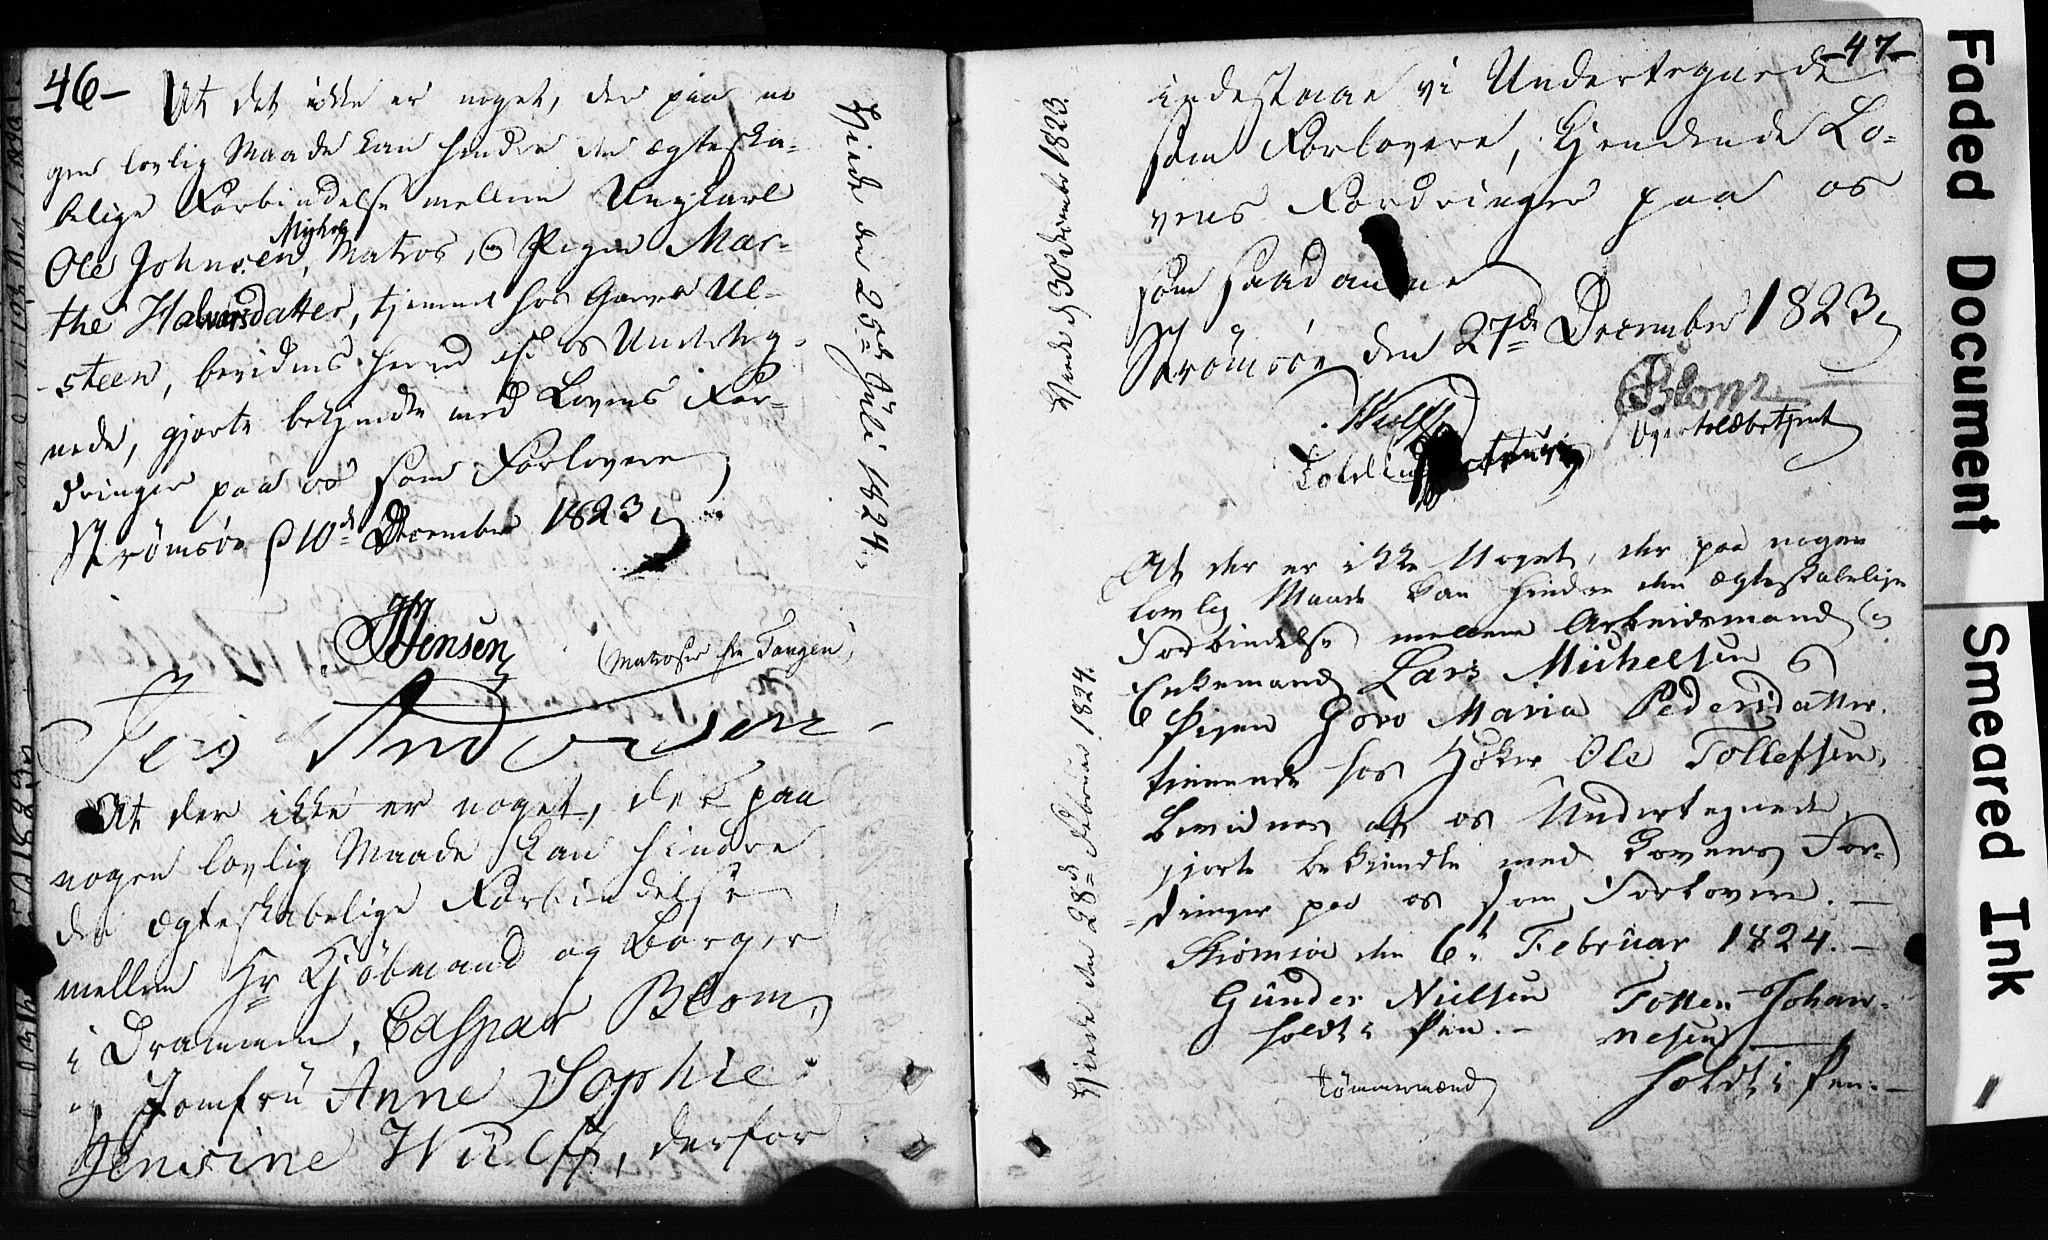 46-
At det ikke er noget, der paa no
gen lovlig Maade kan hindre den ægteska-
belige Forbindelse mellem Ungkarl
Ole Johnsen, Matros, og Pigen Mar-
the Halvorsdatter, tjenende hos Garver Ul-
steen, bevidnes herved af os Underteg-
nede, gjorte bekjendte med Lovens For-
dringer paa os som Forlovere
Strømsøe d 10de December 1823
Jensen
(Matroser fra Tangen)
Jens Andersen
Viede den 25de Juli 1824.
At der ikke er noget, der paa
nogen lovlig Maade kan hindre
den ægteskabelige Forbindelse
mellem Hr Kjøbmand og Borger
i Drammen, Caspar Blom,
og Jomfrü Anne Sophie
Jensine Wülff, derfor
-47-
indestaae vi Undertegnede
som Forlovere, kjendende Lo-
vens Fordringer paa os
som saadanne
Strømsöe den 27de December 1823
Wulff
Blom
Overtoldbetjent
Viede d 30 December 1823.
At der er ikke Noget, der paa nogen
lovlig Maade kan hindre den ægteskabelige
Forbindelse mellem Arbeidsmand og
Enkemand Lars Michelsen og
Pigen Goro Maria Pedersdatter.
tienende hos Høker Ole Tollefsen,
bevidnes af os Undertegnede,
gjorte bekjendte med Lovens For-
dringer paa os som Forlovere.-
Strømsøe den 6te Februar 1824.-
Günder Nielsen
holdt i Pen.-
Totten Johan-
nesen
holdt i Pen.-
tømmermænd
Viede den 28de Februar 1824.
Faded Document
Smeared Ink